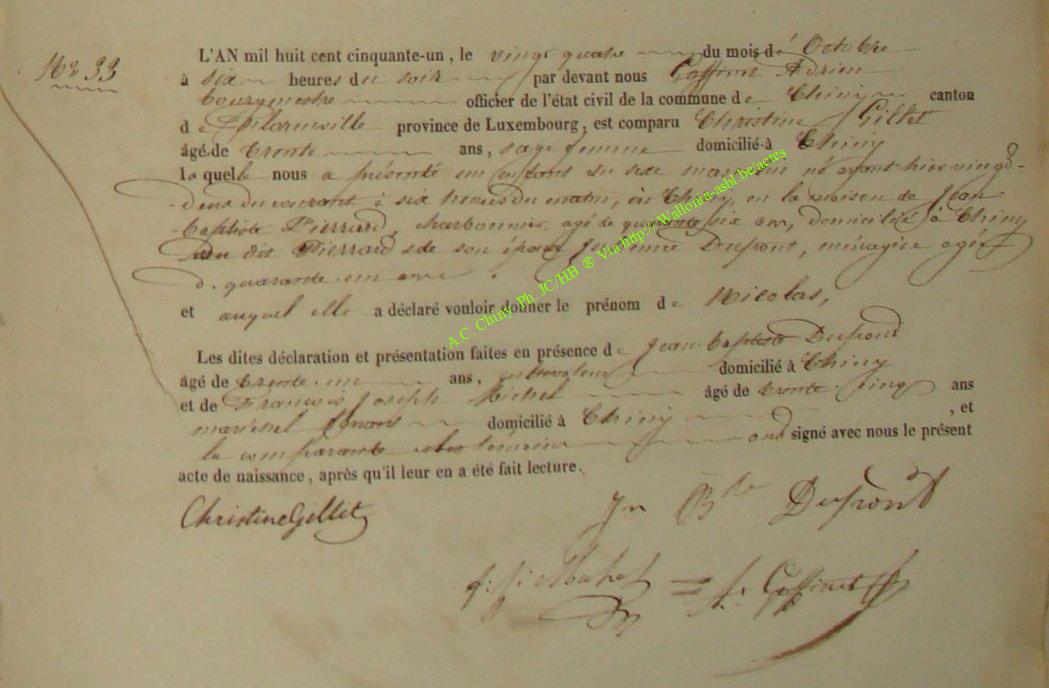 N° 33
L'AN mil huit cent cinquante-un, le vingt quatre du mois d' Octobre
à six heures du soir par devant nous Goffinet Adrien
bourgmestre officier de l'état civil de la commune de Chiny canton
de province de Luxembourg, est comparu Christine Gillet
âgé de trente ans, sage femme domicilié à Chiny
laquelle nous a présenté un enfant du sexe masculin né avant hier vingt-
deux du courant à six heures du matin, à Chiny, en la maison de Jean-
Baptiste Pierrard, charbonnier, agé de quarante six ans, domicilié à Chiny
du dit Pierrard & de son épouse Dupont, ménagère agée
de quarante un ans.
et auquel elle a déclaré vouloir donner le prénom de Nicolas,
Les dites déclaration et présentation faites en présence de Jean Baptiste Dupond
âgé de trente-un ans, cultivateur domicilié à Chiny
et de François Joseph Michel âgé de trente cinq ans
marechal ferrant domicilié à Chiny , et
la comparante & les témoins ont signé avec nous le présent
acte de naissance, après qu'il leur en a été fait lecture.
Christine Gillet
Jn Bte Dupont
f: j: Michel = A: Goffinet
A.C. Chiny Ph. JC/HB ® Via http://Wallonia-asbl.be/actes